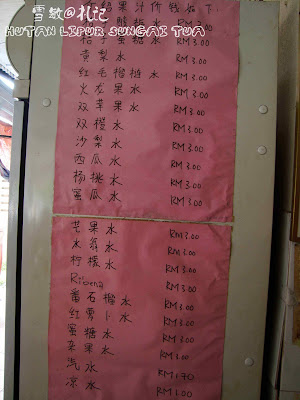 雪敏@札记
HUTAN LIPUR SUNGAI TUA
果汁价钱如下:
酸梅水 RM 3.00
桔子蜜糖水 RM 3.00
黄梨水 RM 3.00
红毛榴梿水 RM 3.00
火龙果水 RM 3.00
双苹果水 RM 3.00
双橙水 RM 3.00
沙梨水 RM 3.00
西瓜水 RM 3.00
杨桃水 RM 3.00
蜜瓜水 RM 3.00
芒果水 RM 3.00
木翁水 RM 3.00
柠檬水 RM 3.00
Ribena RM 3.00
番石榴水 RM 3.00
红萝卜水 RM 3.00
蜜糖水 RM 3.00
杂果水 RM 3.00
汽水 RM 1.70
凉水 RM 1.00